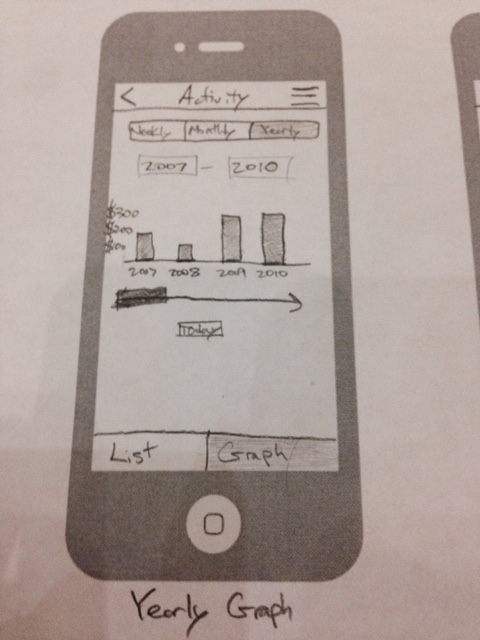 < Activity
Weekly Monthly Yearly
2007 - 2010
$300
$200
$100
2007 2008 2009 2010
Today
List Graph
Yearly Graph